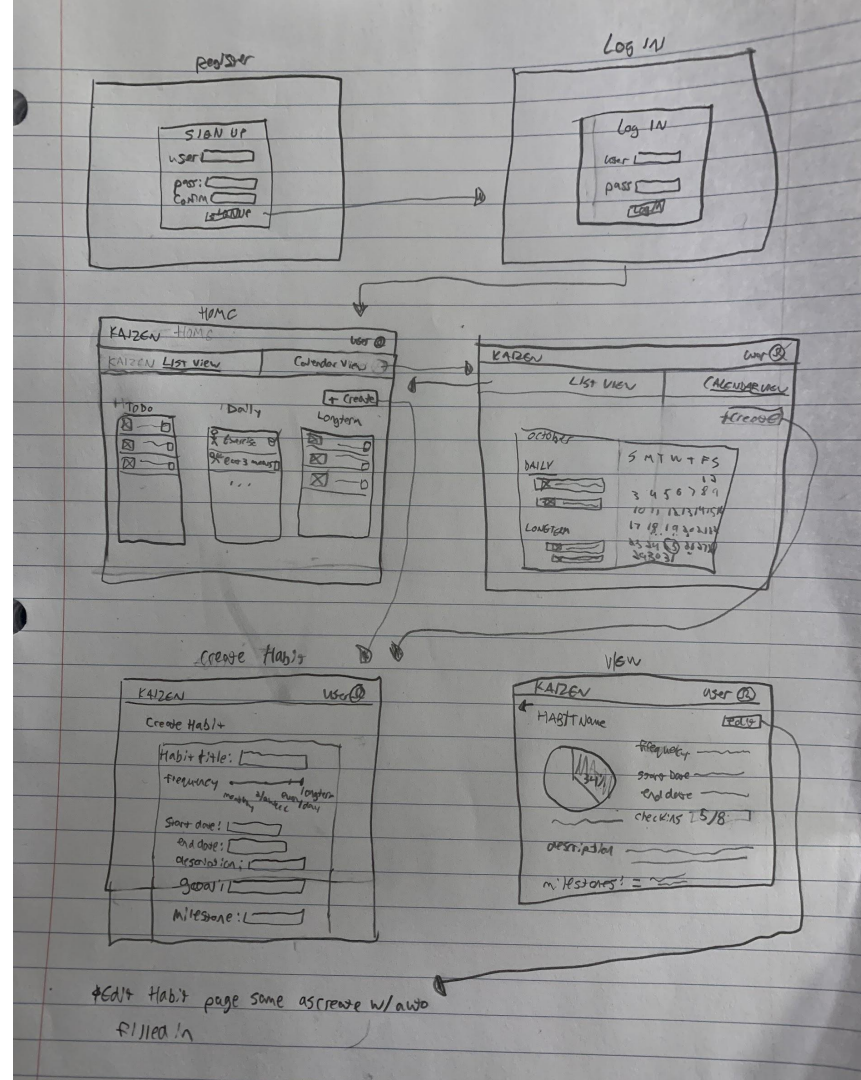 Register
SIGN UP
user
pass:
Confirm
SIGN UP
Log IN
Log IN
user
pass
Log IN
HOME
KAIZEN HOME
user
KAIZEN LIST VIEW
Calendar View
+ Create
To Do
Daily
Longterm
Exercise
eat 3 meals
...
KAIZEN
user
LIST VIEW
CALENDAR VIEW
+Create
October
S M T W T F S
1 2
3 4 5 6 7 8 9
10 11 12 13 14 15 16
17 18 19 20 21 22
23 24 25
30 31
DAILY
LONGTERM
Create Habit
KAIZEN
user
Create Habit
Habit title:
frequency
monthly
everyday
longterm
Start date:
end date:
description:
goal:
Milestone:
VIEW
KAIZEN
user
HABIT Name
edit
34%
frequency
start Date
end date
checkins 5/8
description
milestones:
*Edit Habit page same as create w/ auto
filled in